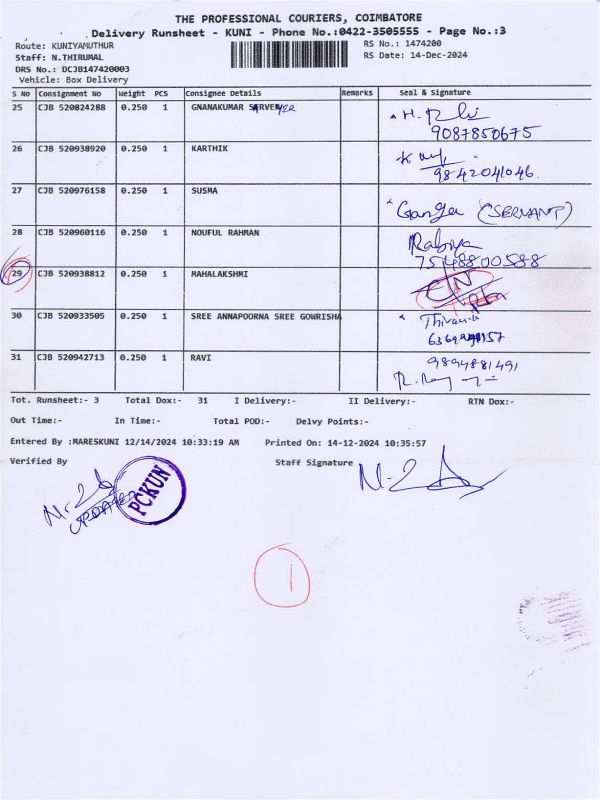 THE PROFESSIONAL COURIERS, COIMBATORE
Delivery Runsheet - KUNI - Phone No.:0422-3505555 - Page No.:3
Route: KUNIYAMUTHUR RS No.: 1474200
Staff: N.THIRUMAL RS Date: 14-Dec-2024
DRS No.: DCJB147420003
Vehicle: Box Delivery
S No Consignment No Weight PCS Consignee Details Remarks Seal & Signature
25 CJB 520824288 0.250 1 GNANAKUMAR
9087850675
26 CJB 520938920 0.250 1 KARTHIK
9842041046.
27 CJB 520976158 0.250 1 SUSMA Ganga (SERVANT)
28 CJB 520960116 0.250 1 NOUFUL RAHMAN Rabiya
7548800588
29 CJB 520938812 0.250 1 MAHALAKSHMI
30 CJB 520933505 0.250 1 SREE ANNAPOORNA SREE GOWRISHA
31 CJB 520942713 0.250 1 RAVI 9894881491
Tot. Runsheet:- 3 Total Dox:- 31 I Delivery:- II Delivery:- RTN Dox:-
Out Time:- In Time:- Total POD:- Delvy Points:-
Entered By :MARESKUNI 12/14/2024 10:33:19 AM Printed On: 14-12-2024 10:35:57
Verified By Staff Signature
PCKUN
1